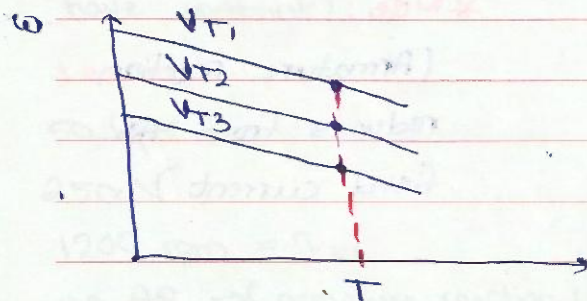 ω
VT1
VT2
VT3
T